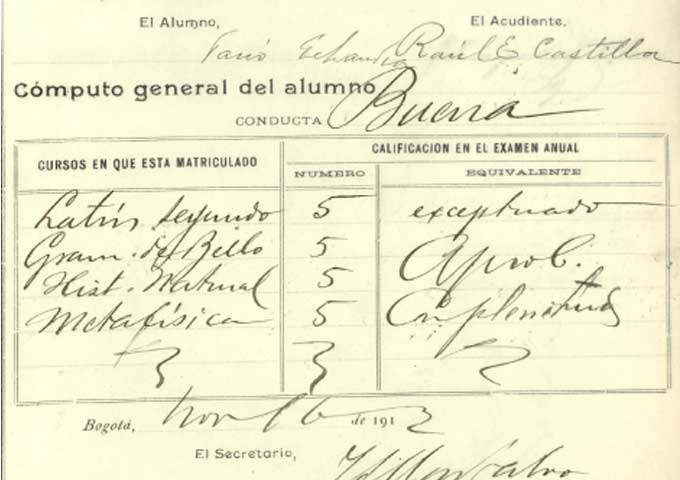 El Alumno, El Acudiente,
Darío Echandía Raúl E Castilla
Cómputo general del alumno
CONDUCTA Buena
CURSOS EN QUE ESTA MATRICULADO CALIFICACION EN EL EXAMEN ANUAL
NUMERO EQUIVALENTE
Latín segundo 5 exceptuado
Gram. de Bello 5 Aprob.
Hist. Natural 5
Metafísica 5 En plenitud
Bogotá, Nov 16 de 191
El Secretario,